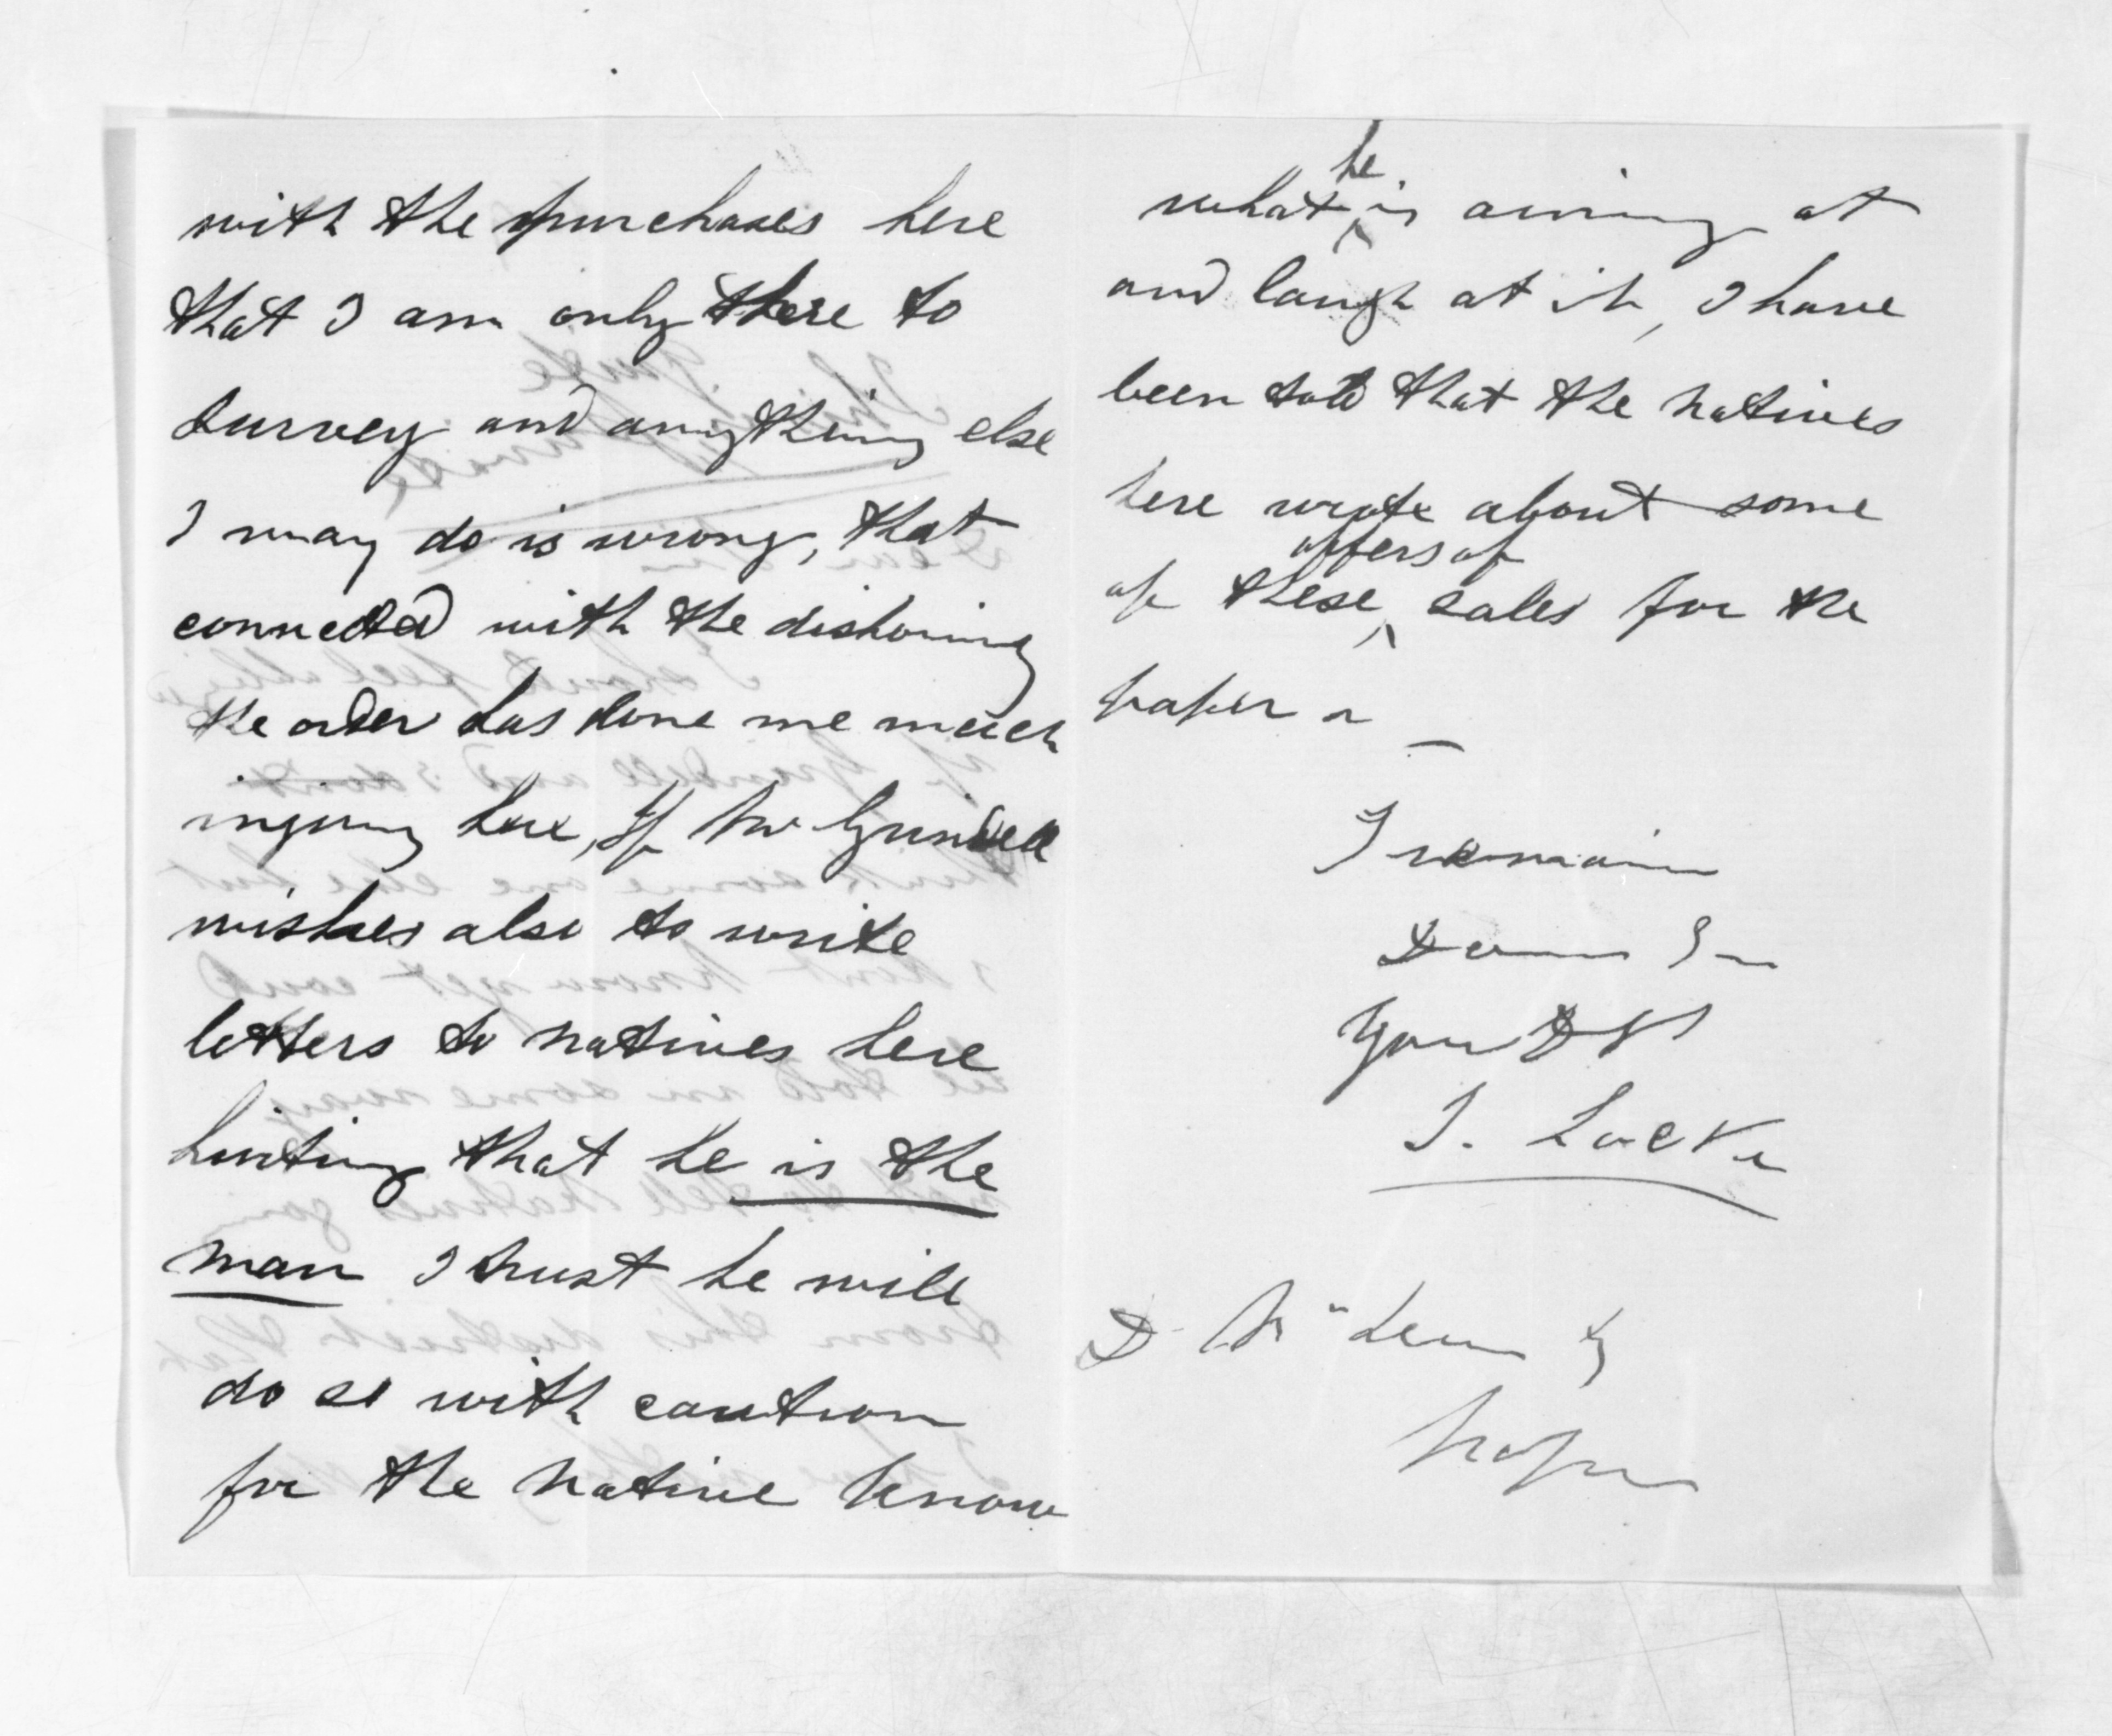 with the purchases here
that I am only there to
survey and anything else
I may do is wrong, that
connected with the dishoning
the order has done me much
injury here, If Mr Grindell
wishes also to write
letters to natives here
hinting that he is the
man I trust he will
do so with caution
for the native know
what he is aiming at
and laugh at it, I have
been told that the natives
here wrote about some
of these offers of sales for the
paper
I remain
Dear Sir
Your
S. Locke
D McLean Esq
Napier